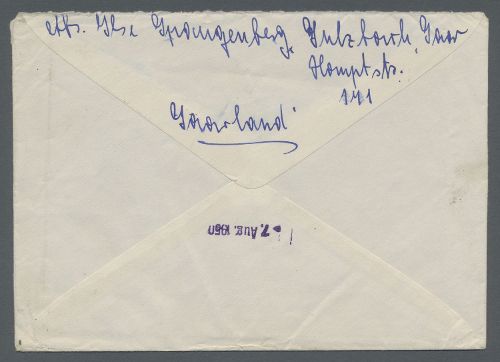 Abs. Ilse Spangenberg, Sulzbach, Saar
Hauptstr.
141
Saarland
7. Aug. 1950